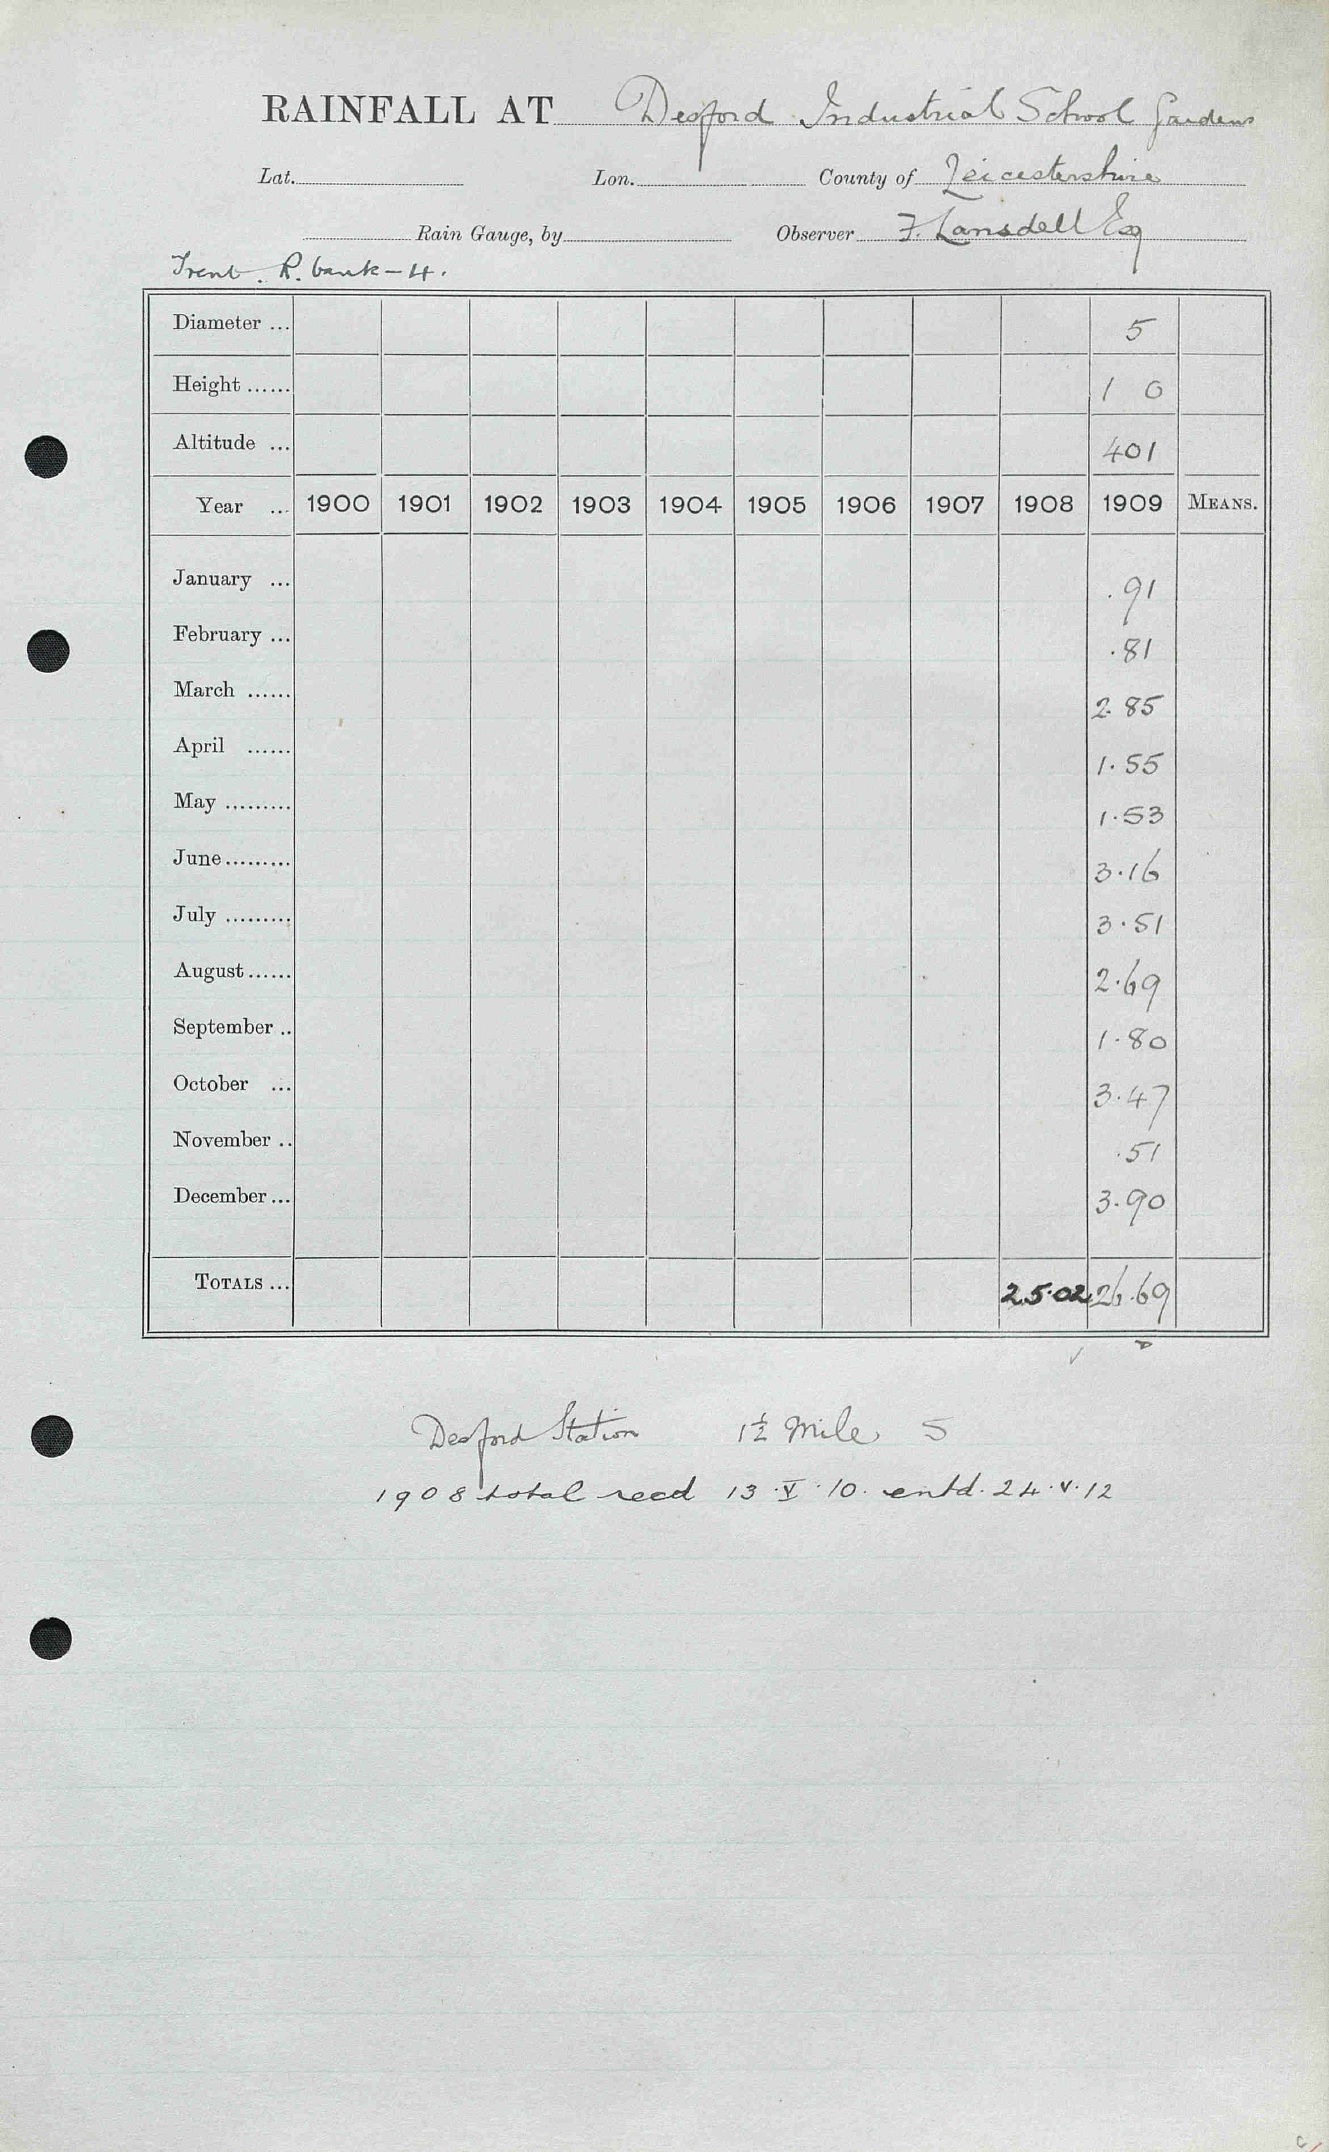 RAINFALL AT Desford Industrial School Gardens
Lat. Lon. County of Leicestershire
Rain Gauge, by Observer F. Lansdell Esq
Trent. R. bank - 4.
Diameter ... 5
Height ...... 1 0
Altitude ... 401
Year ... 1900 1901 1902 1903 1904 1905 1906 1907 1908 1909 MEANS.
January ... .91
February ... .81
March ...... 2.85
April ...... 1.55
May ......... 1.53
June ......... 3.16
July ......... 3.51
August ...... 2.69
September .. 1.80
October ... 3.47
November .. .51
December ... 3.90
TOTALS ... 25.02 26.69
Desford Station 1½ Mile S
1908 total recd 13.V.10. entd. 24.V.12